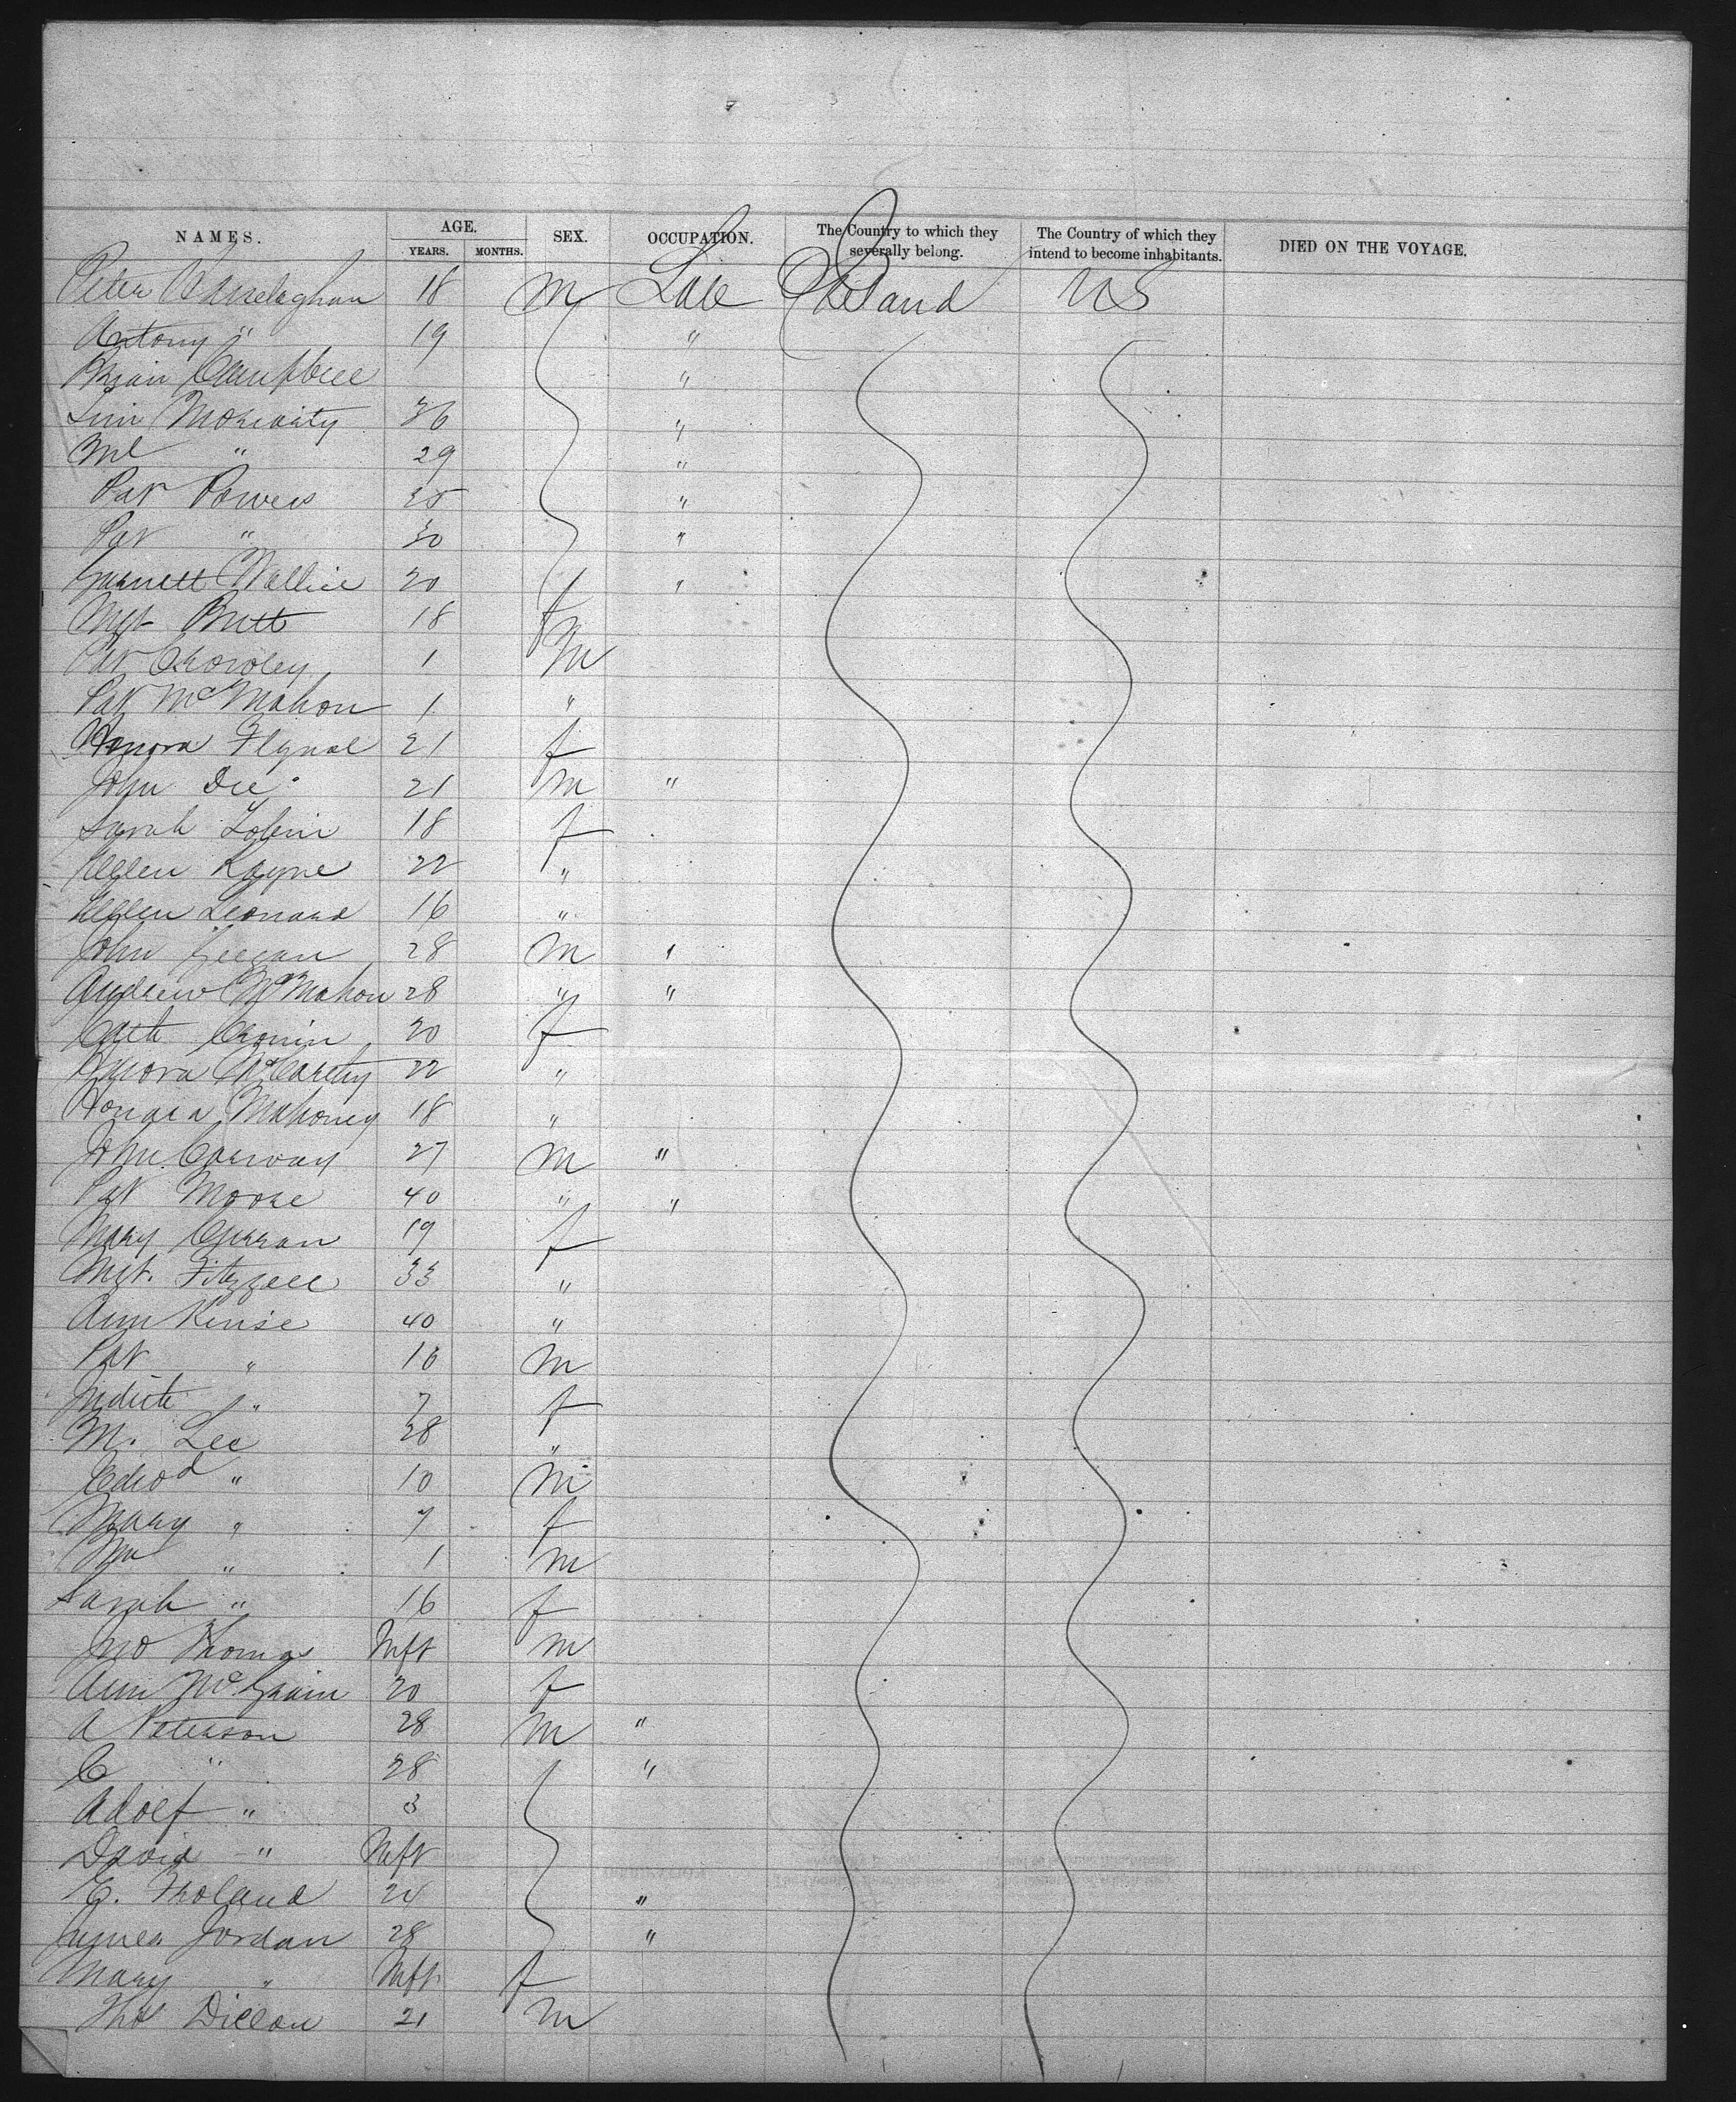 NAMES. AGE. SEX. OCCUPATION. The Country to which they severally belong. The Country of which they intend to become inhabitants. DIED ON THE VOYAGE.
YEARS. MONTHS.
Peter 18 m Lab Ireland US
Antony " 19 "
Brian Campbell "
Moriarty 36 "
Ml " 29 "
Pat Powers 25 "
Pat " 30 "
Garrett 20 "
Mgt Britt 18 f
Pat Crowley 1 m
Pat McMahon 1 "
Honora 21 f
John Dee 21 m "
Sarah Tobin 18 f
Ellen 22 "
Ellen Leonard 16 "
John Keegan 28 m "
Andrew McMahon 28 " "
Cath Cronin 20 f
Honora McCarthy 22 "
Honora Mahoney 18 "
John Conway 27 m "
Pat Moore 40 " "
Mary Curran 19 f
Mgt. 33 "
Ann 40 "
Pat " m
Judith " 7 f
M. Lee 38 "
Edwd " 10 m
Mary " 7 f
" 1 m
Sarah " 16 f
Jno Thomas Inft m
Ann 20 f
A Peterson 28 m "
C " 28 "
Adolf " 3
David " Inft
E. 24 "
James Jordan 28 "
Mary " Inft f
Thos Dillon 21 m